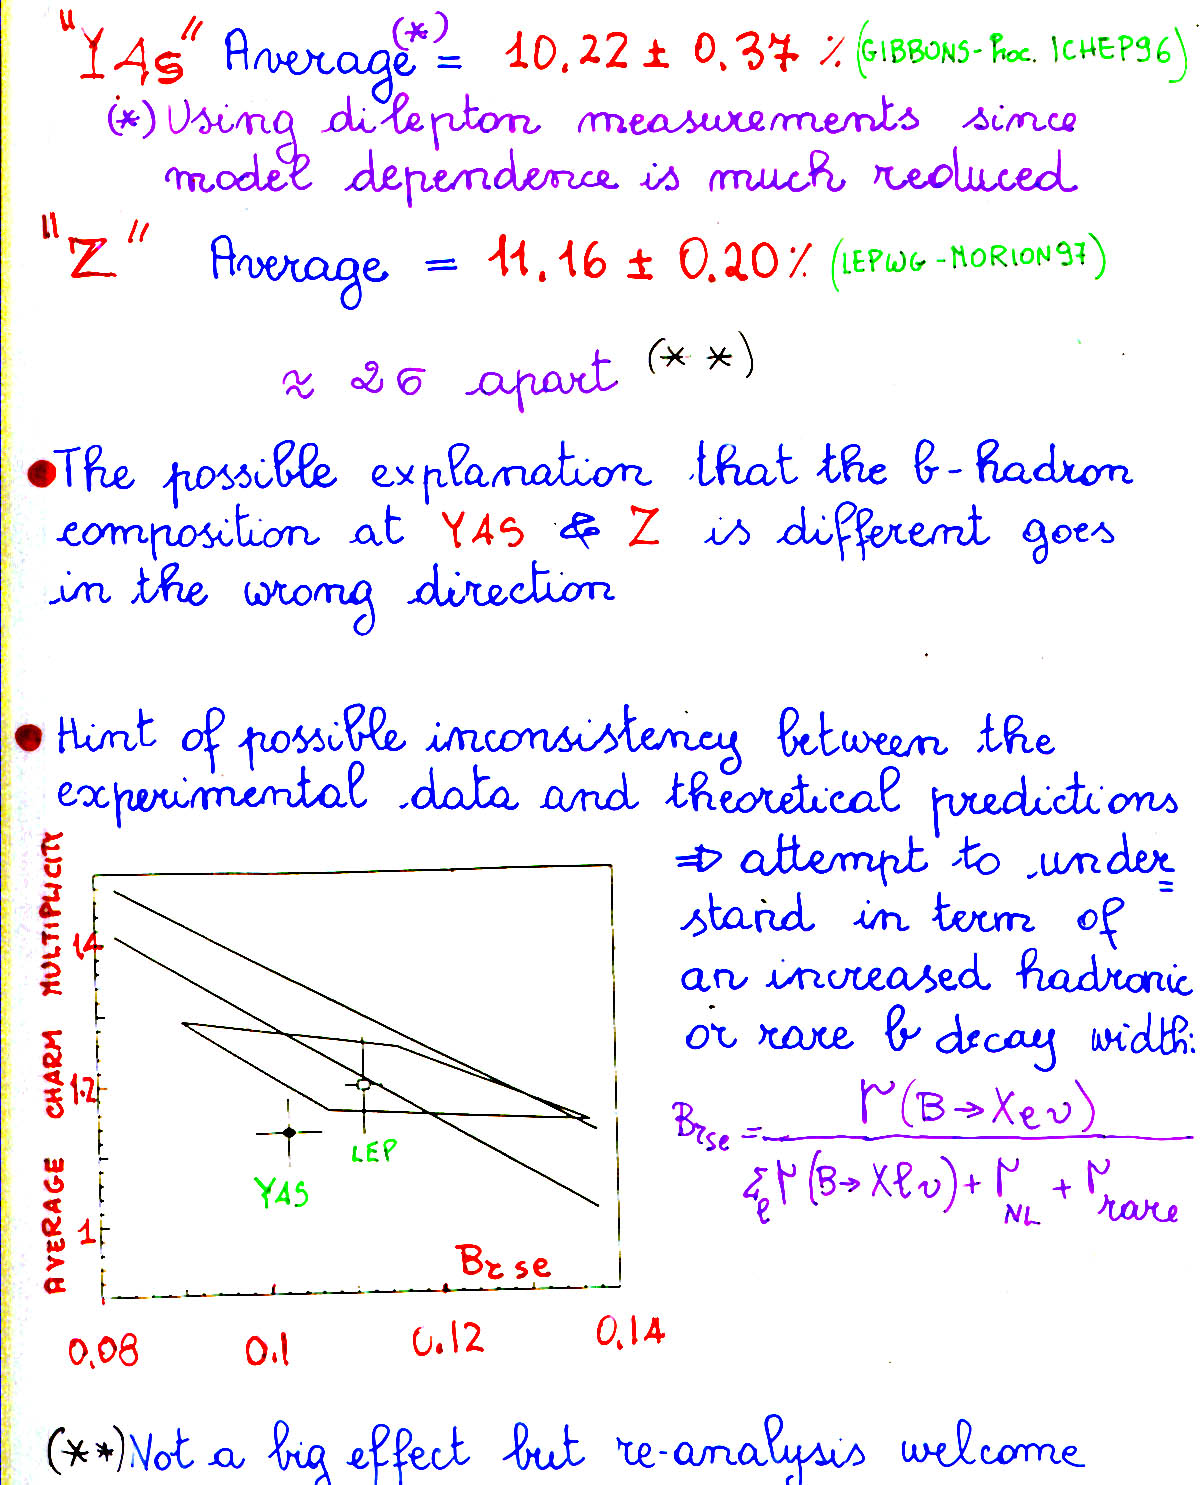 "Υ4s" Average(*) = 10.22 ± 0.37 % (GIBBONS-Proc. ICHEP96)
(*) Using dilepton measurements since
model dependence is much reduced
"Z" Average = 11.16 ± 0.20% (LEPWG-MORION97)
≈ 2σ apart (**)
The possible explanation that the b-hadron
composition at Υ4S & Z is different goes
in the wrong direction
Hint of possible inconsistency between the
experimental data and theoretical predictions
⇒ attempt to under=
stand in term of
an increased hadronic
or rare b decay width:
Br se = Γ(B→Xeν) / Σℓ Γ(B→Xℓν) + Γ NL + Γ rare
AVERAGE CHARM MULTIPLICITY
1.4
1.2
1
LEP
Υ4S
Br se
0.08 0.1 0.12 0.14
(**) Not a big effect but re-analysis welcome